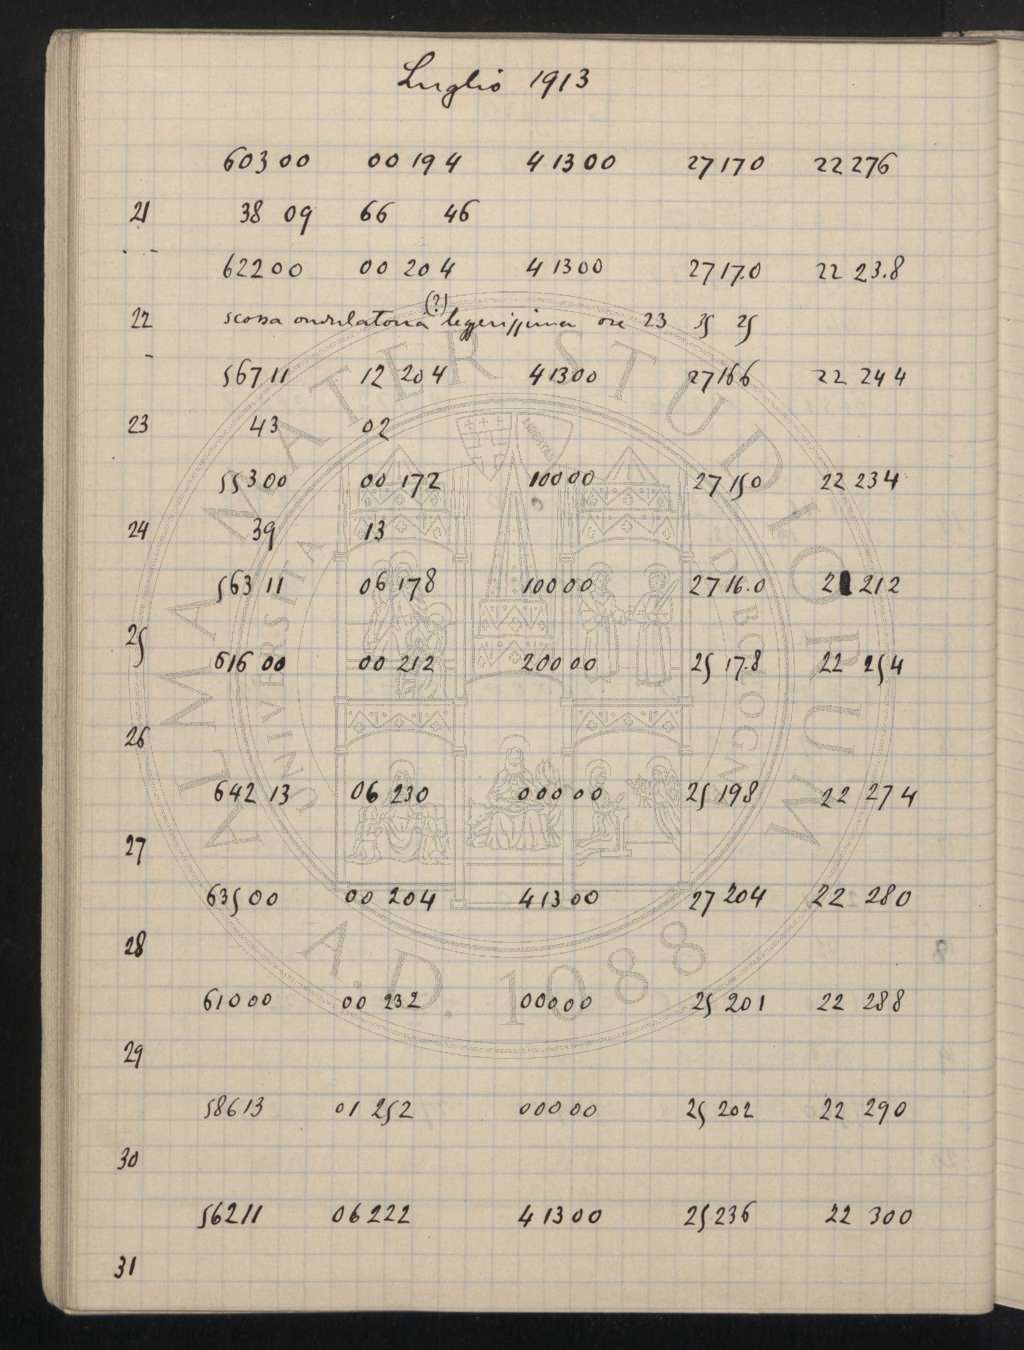 Luglio 1913
60300 00194 41300 27170 22276
21 38 09 66 46
62200 00 204 41300 2717.0 22 23.8
22 scossa ondulatoria (?) leggerissima ore 23 35 25
56711 12 204 41300 27166 22 244
23 43 02
55300 00 172 10000 27150 22 234
24 39 13
56311 06 178 10000 2716.0 212
25
61600 00 212 20000 25 17.8 22 254
26
642 13 06 230 00000 25 198 22 274
27
63500 00 204 41300 27 204 22 280
28
61000 00 232 00000 25 201 22 288
29
58613 01 252 00000 25 202 22 290
30
56211 06222 41300 25236 22 300
31
ALMA MATER STUDIORUM
UNIVERSITA DI BOLOGNA
A.D. 1088